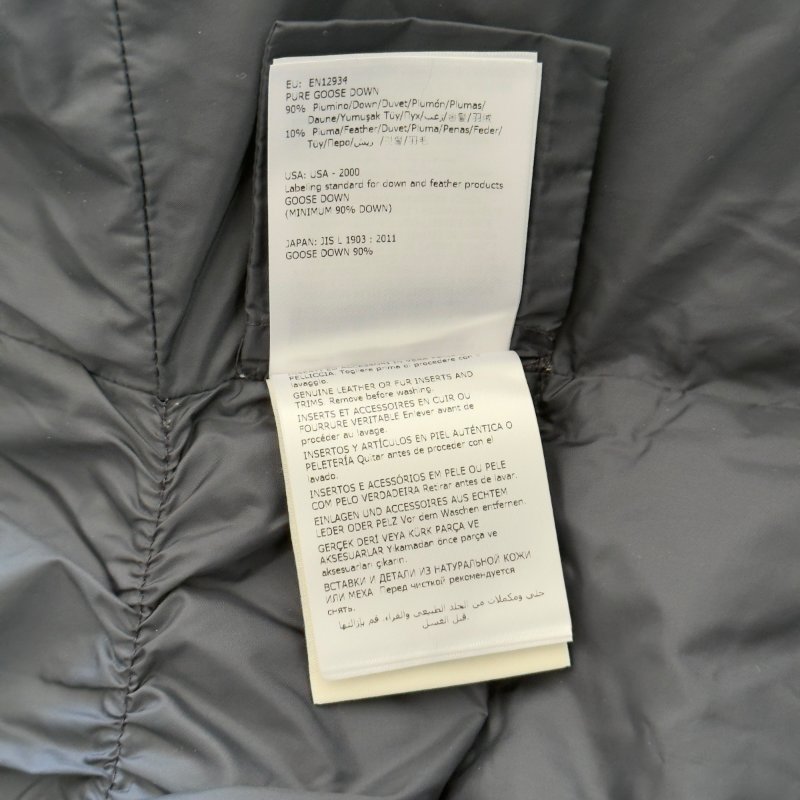 EU: EN12934
PURE GOOSE DOWN
90% Piumino/Down/Duvet/Plumón/Plumas/
Daune/Yumuşak Tüy/Пух/زغب/
10% Piuma/Feather/Duvet/Pluma/Penas/Feder/
Tüy/Перо/ريش/
USA: USA - 2000
Labeling standard for down and feather products
GOOSE DOWN
(MINIMUM 90% DOWN)
JAPAN: JIS L 1903 : 2011
GOOSE DOWN 90%
PELLICCIA. Togliere prima di procedere con il
lavaggio.
GENUINE LEATHER OR FUR INSERTS AND
TRIMS. Remove before washing.
INSERTS ET ACCESSOIRES EN CUIR OU
FOURRURE VERITABLE Enlever avant de
procéder au lavage.
INSERTOS Y ARTÍCULOS EN PIEL AUTÉNTICA O
PELETERÍA Quitar antes de proceder con el
lavado.
INSERTOS E ACESSÓRIOS EM PELE OU PELE
COM PELO VERDADEIRA Retirar antes de lavar.
EINLAGEN UND ACCESSOIRES AUS ECHTEM
LEDER ODER PELZ Vor dem Waschen entfernen.
GERÇEK DERİ VEYA KÜRK PARÇA VE
AKSESUARLAR Yıkamadan önce parça ve
aksesuarları çıkarın.
ВСТАВКИ И ДЕТАЛИ ИЗ НАТУРАЛЬНОЙ КОЖИ
ИЛИ МЕХА Перед чисткой рекомендуется
снять.
حلي ومكملات من الجلد الطبيعي والفراء. قم بإزالتها
قبل الغسل.